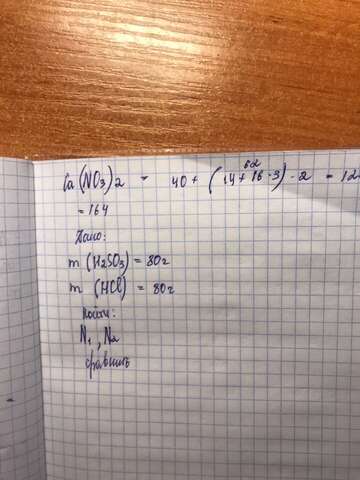 62
Ca(NO3)2 = 40 + (14 + 16 · 3) · 2 = 12
= 164
Дано:
m (H2SO3) = 80г
m (HCl) = 80г
Найти:
N1, N2
сравнить